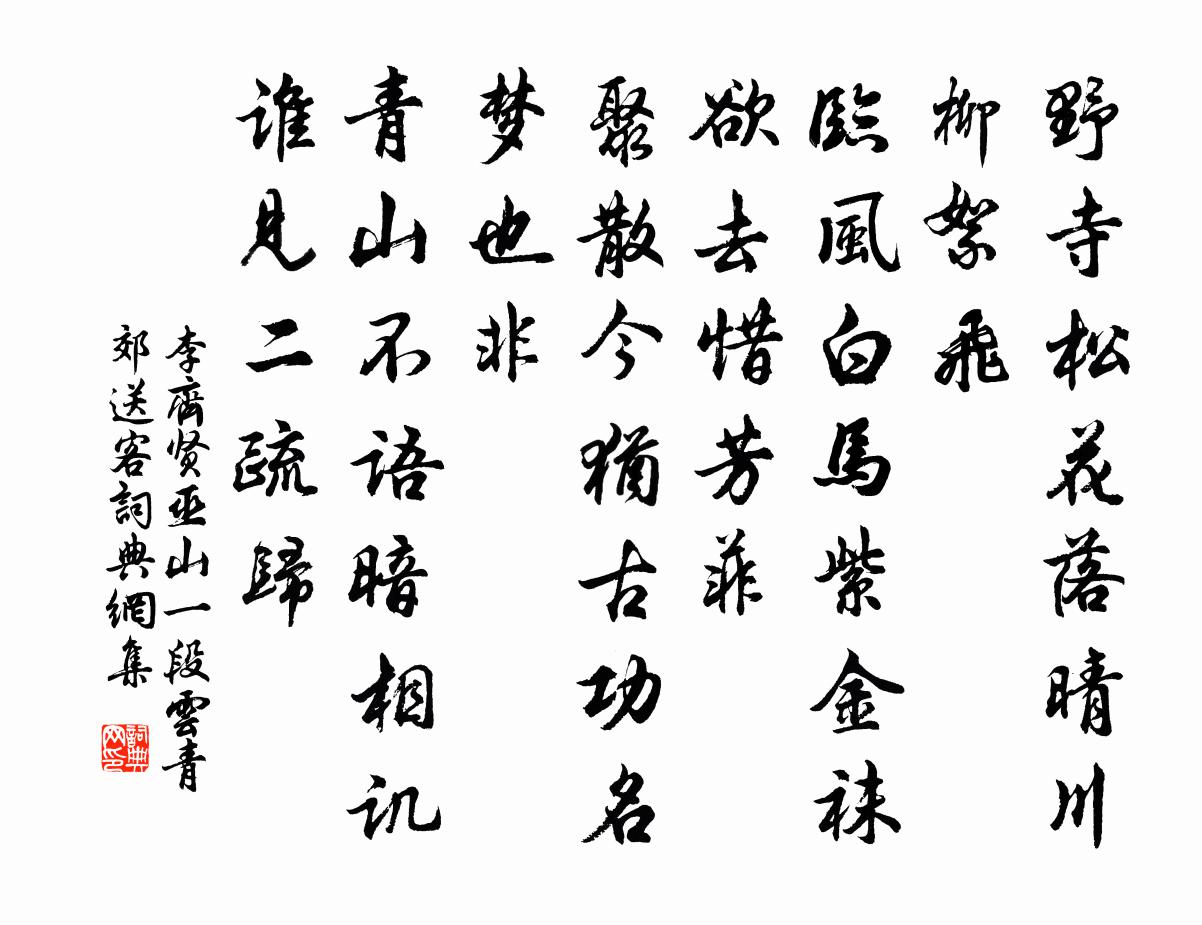 野寺松花落晴川
柳絮飛
臨風白馬紫金袜
欲去惜芳菲
聚散今猶古功名
梦也非
青山不语暗相讥
谁见二疏歸
李齊贤巫山一段雲青
郊送客詞典網集
詞典
网印